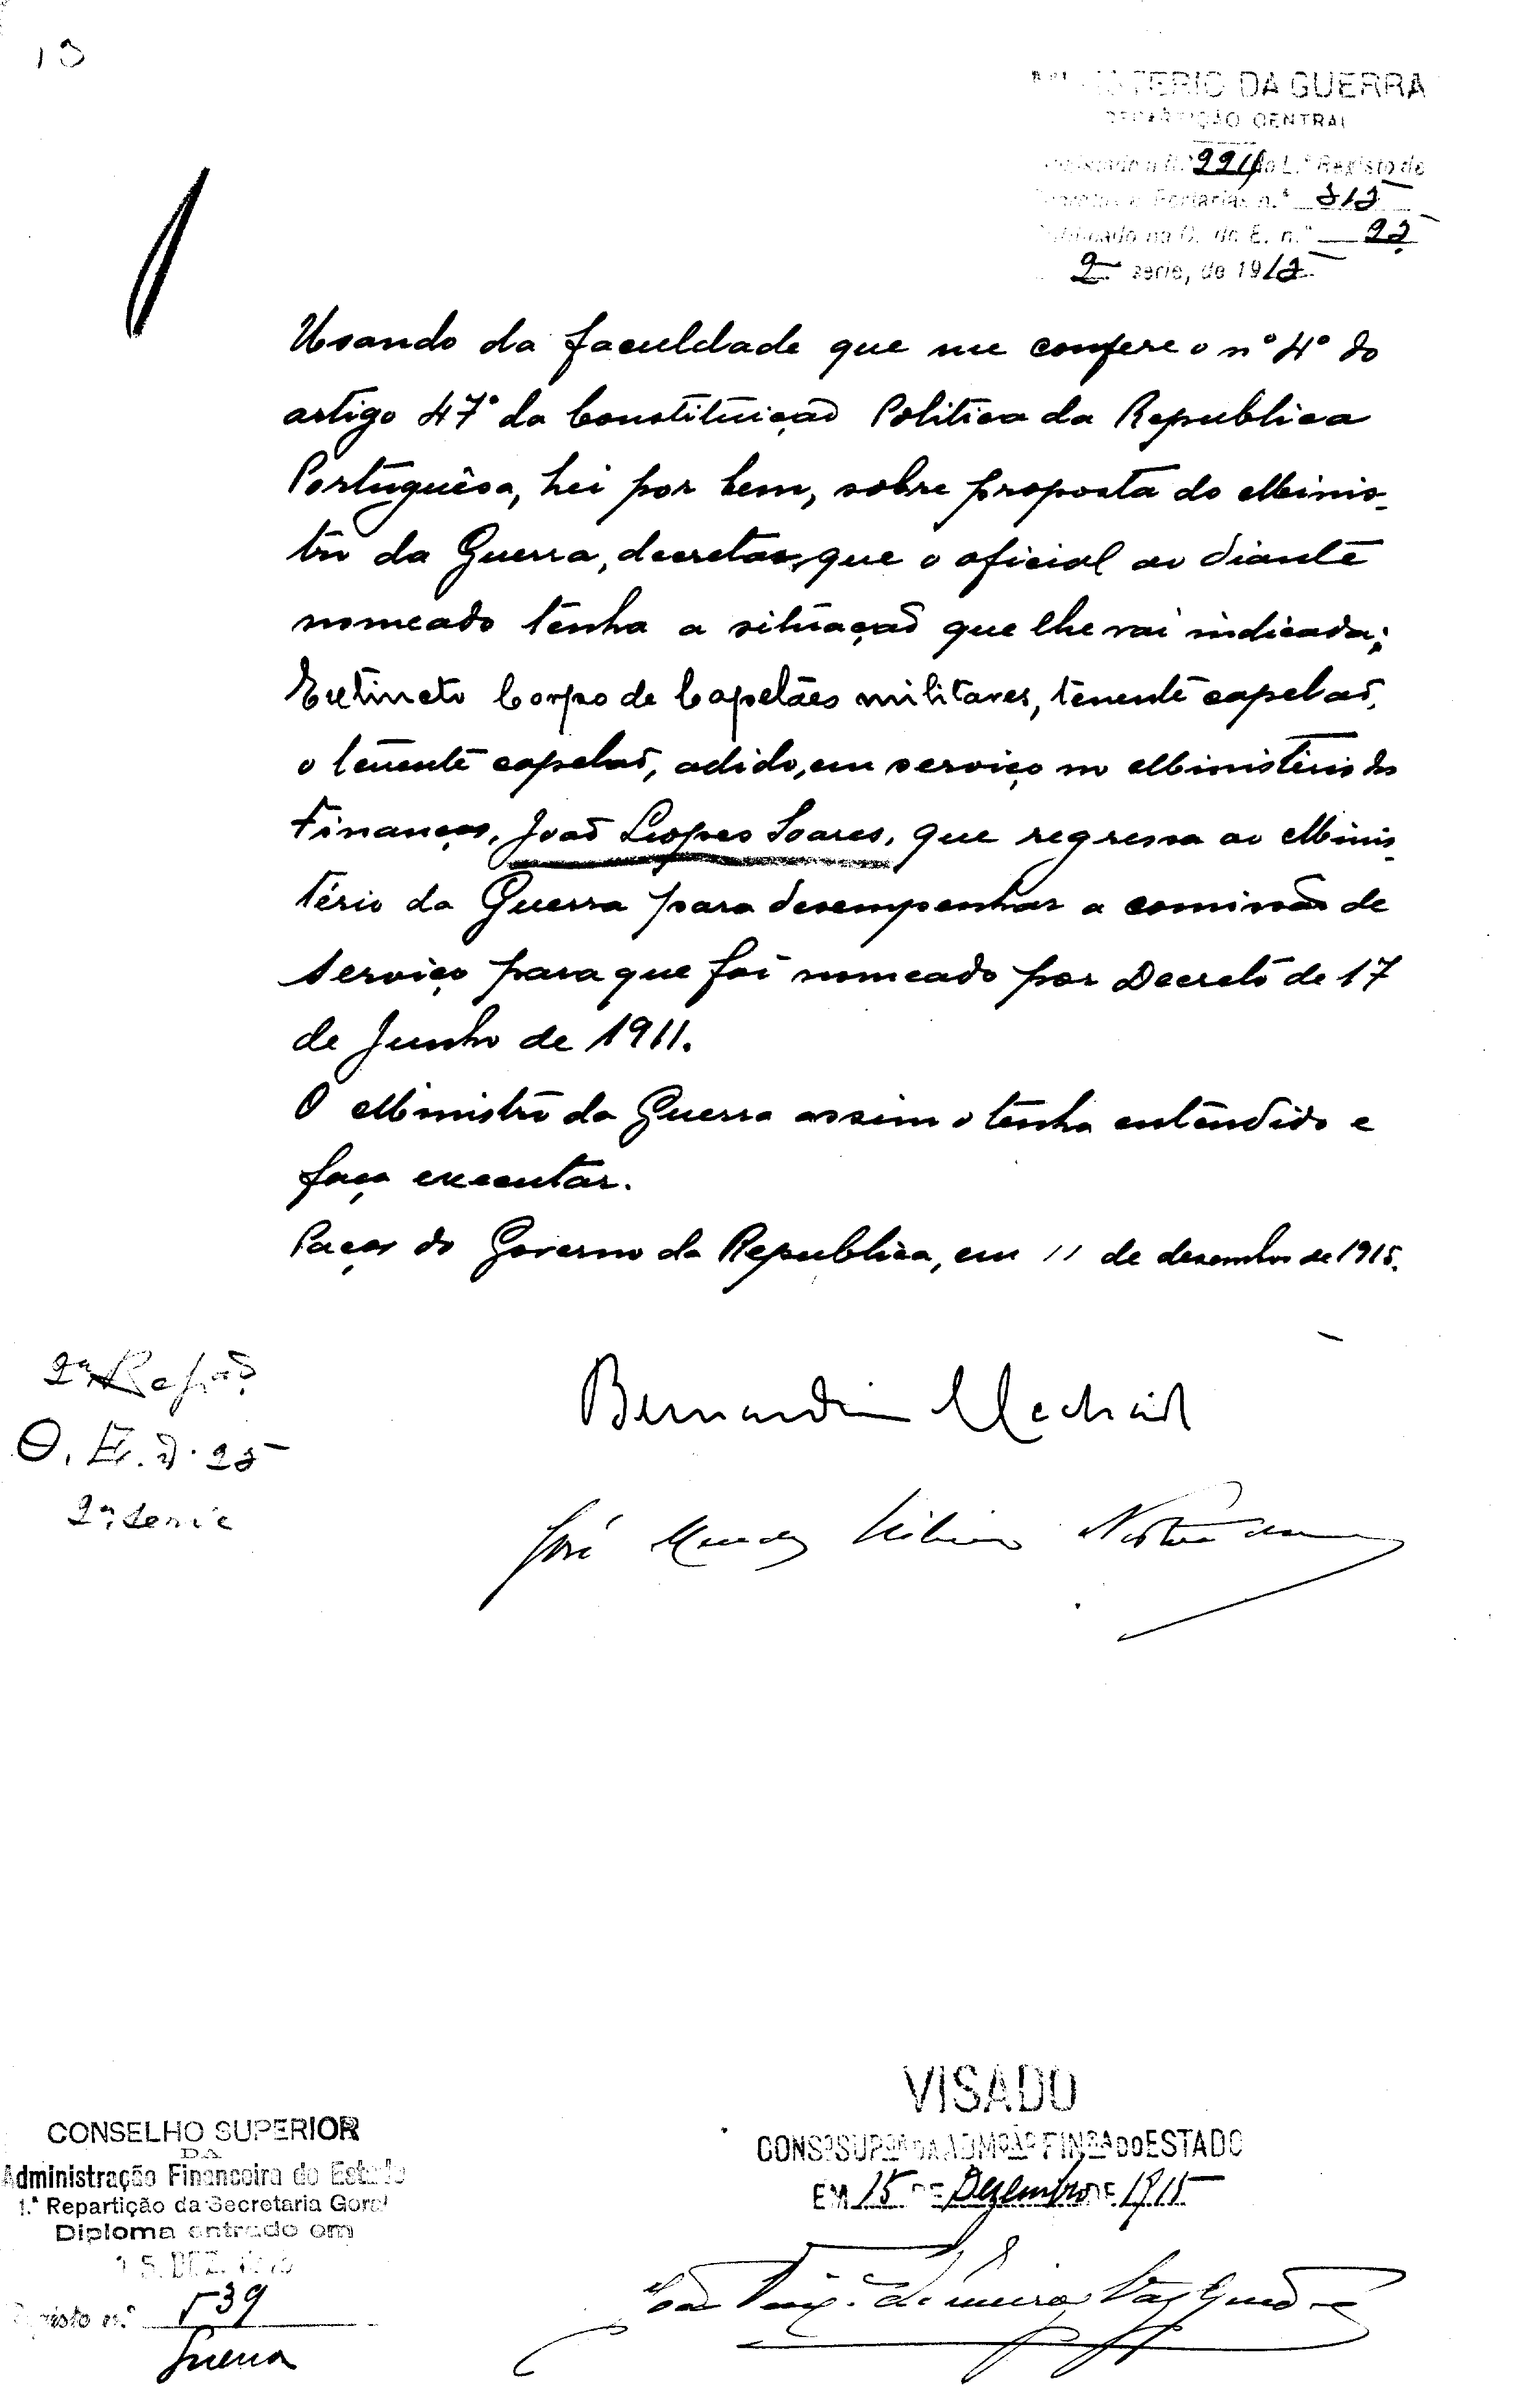 13
MINISTERIO DA GUERRA
REPARTIÇÃO CENTRAL
Registado n.º 991 do L.º Registo de
Decretos e Portarias n.º 315
Publicado na O. do E. n.º 25
2ª serie, de 1915
Usando da faculdade que me confere o nº 4º do
artigo 47º da Constituição Politica da Republica
Portuguêsa, hei por bem, sobre proposta do Minis-
tro da Guerra, decretar que o oficial ao diante
nomeado tenha a situação que lhe vai indicada:
Extincto Corpo de Capelães militares, tenente capelão,
o tenente capelão, adido, em serviço no Ministério das
Finanças, João Lopes Soares, que regressa ao Minis-
tério da Guerra para desempenhar a comissão de
serviço para que foi nomeado por Decreto de 17
de Junho de 1911.
O Ministro da Guerra assim o tenha entendido e
faça executar.
Paços do Governo da Republica, em 11 de dezembro de 1915.
2ª Repão
O. E. nº 25
2ª serie
Bernardino Machado
José Mendes Ribeiro Norton de
VISADO
CONSº SUPºR DA ADMºÃº FINºRA DO ESTADO
EM 15 DE Dezembro DE 1915
CONSELHO SUPERIOR
DA
Administração Financeira do Estado
1.ª Repartição da Secretaria Geral
Diploma entrado em
15 DEZ. 1915
Registo n.º 539
Guerra